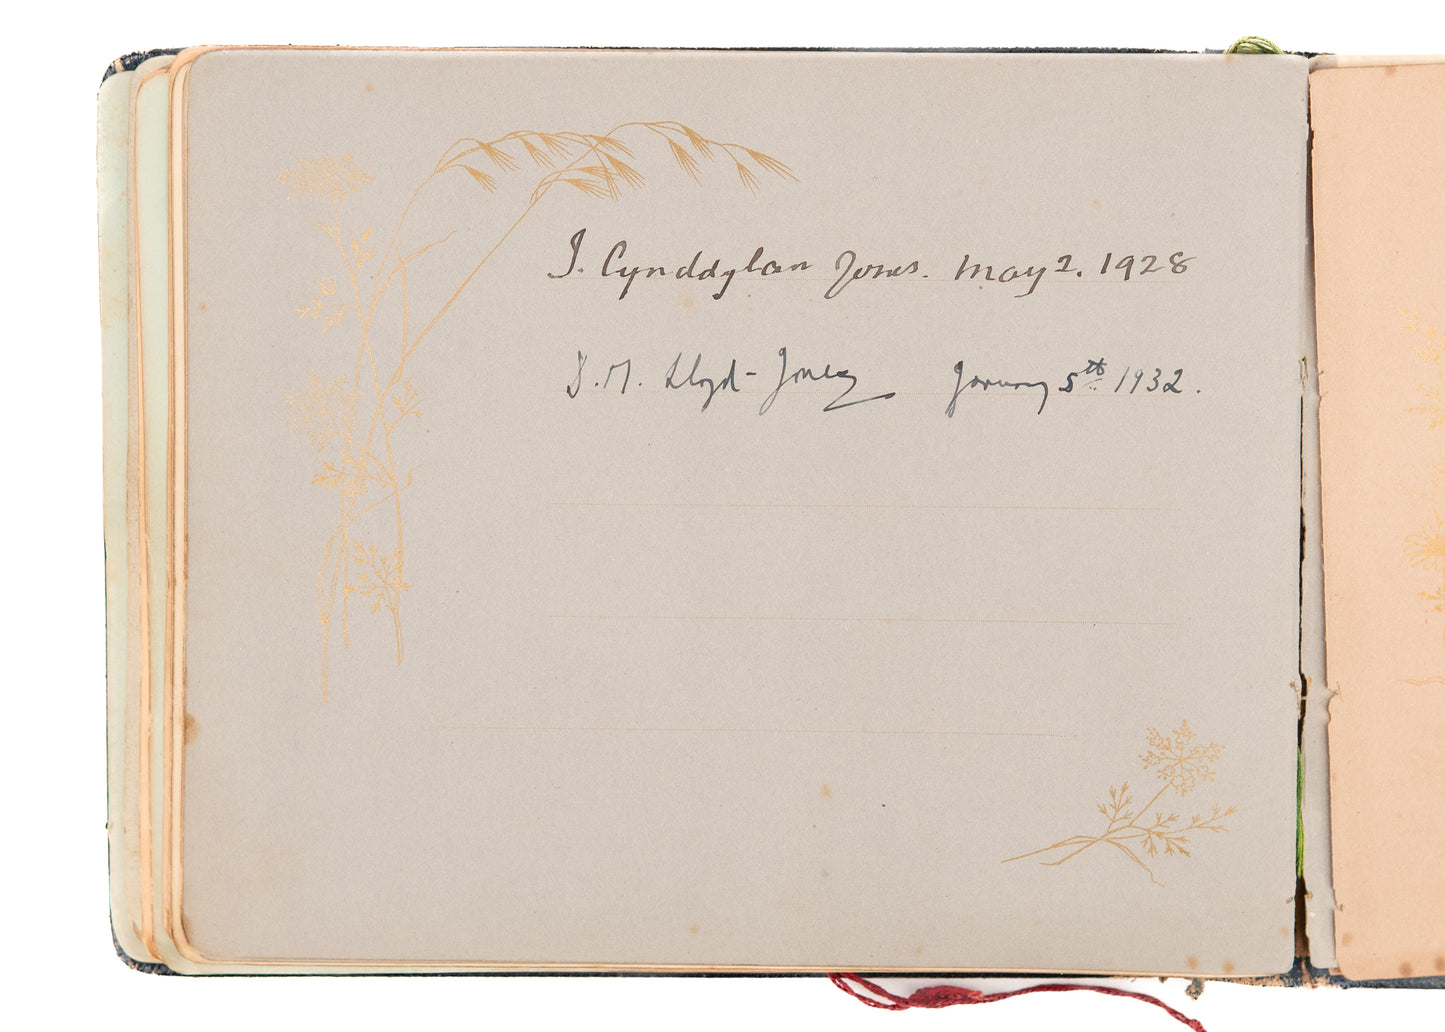 J. Cynddylan Jones. May 2. 1928
D. M. Lloyd-Jones January 5th 1932.